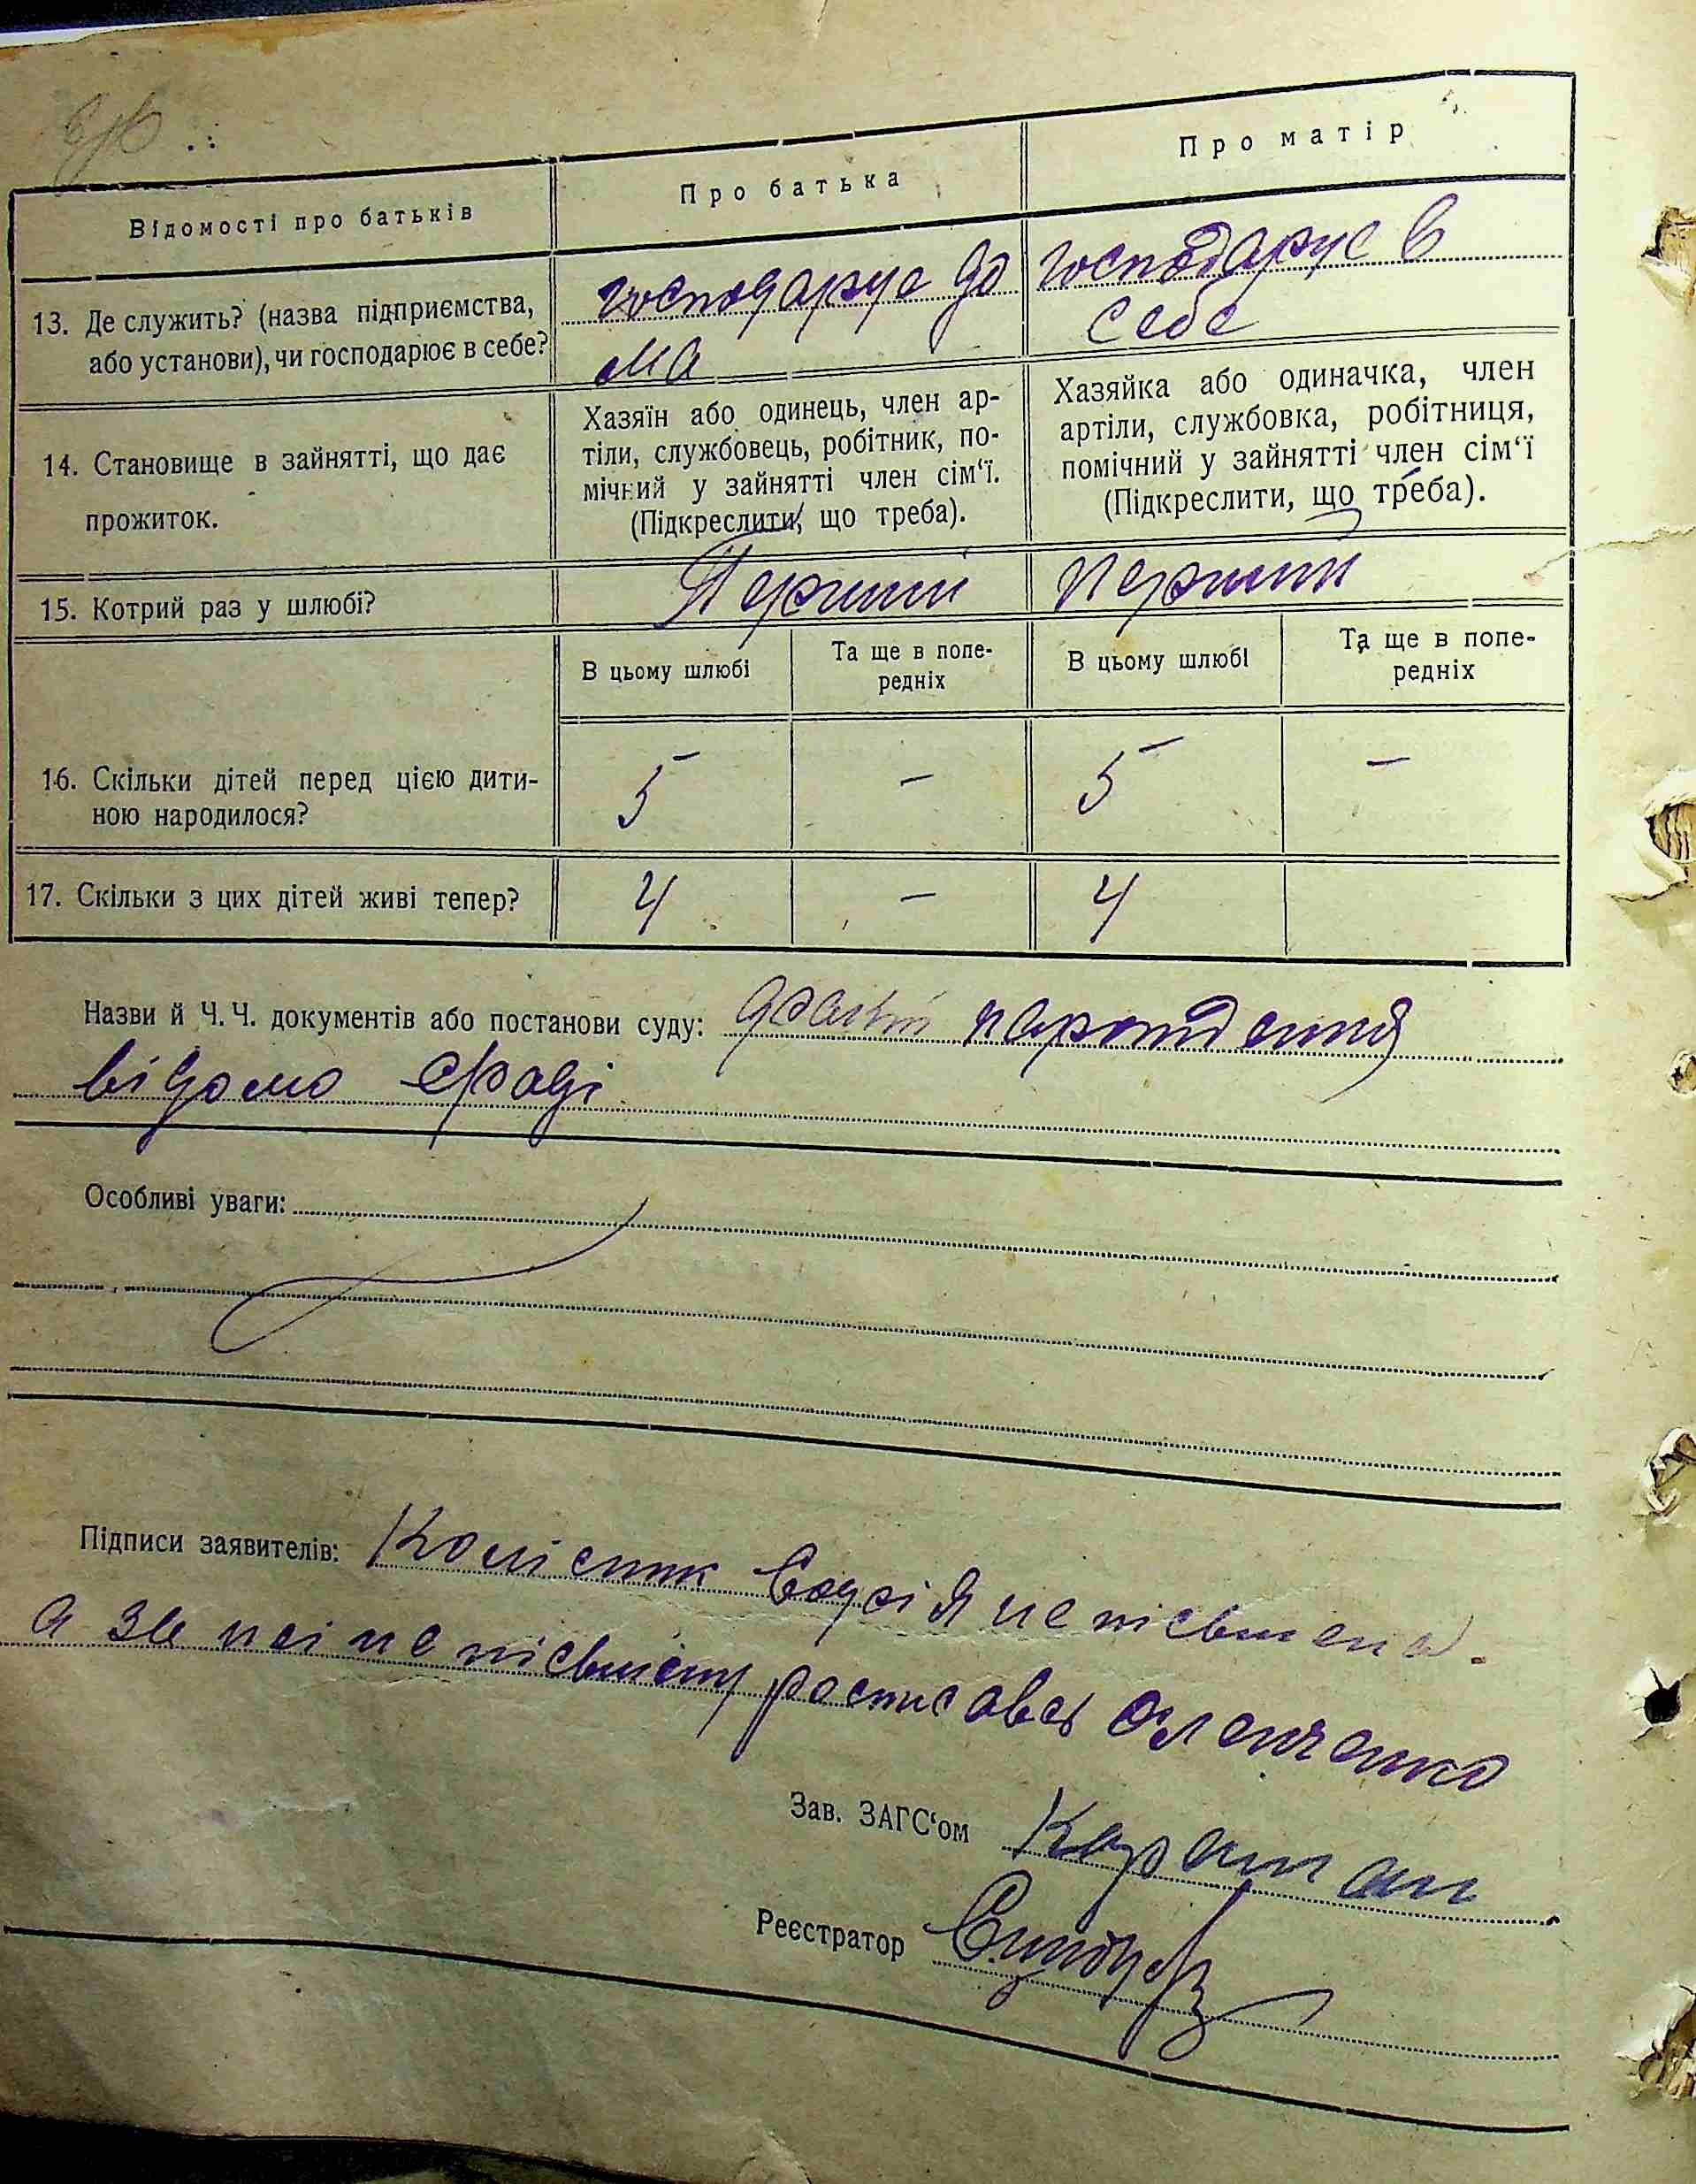 Відомості про батьків
Про батька
Про матір
13. Де служить? (назва підприємства,
або установи), чи господарює в себе?
господарує до
ма
господарує в
себе
14. Становище в зайнятті, що дає
прожиток.
Хазяїн або одинець, член ар-
тіли, службовець, робітник, по-
мічний у зайнятті член сім‘ї.
(Підкреслити, що треба).
Хазяйка або одиначка, член
артіли, службовка, робітниця,
помічний у зайнятті член сім‘ї
(Підкреслити, що треба).
15. Котрий раз у шлюбі?
Перший
перший
В цьому шлюбі
Та ще в попе-
редніх
В цьому шлюбі
Та ще в попе-
редніх
16. Скільки дітей перед цією дити-
ною народилося?
5 — 5 —
17. Скільки з цих дітей живі тепер?
4 — 4
Назви й Ч.Ч. документів або постанови суду: народження
відомо сраді
Особливі уваги:
Підписи заявителів: Колісник неписьмена.
а за неї неписьмену росписавсь Оленченко
Зав. ЗАГС‘ом
Реєстратор